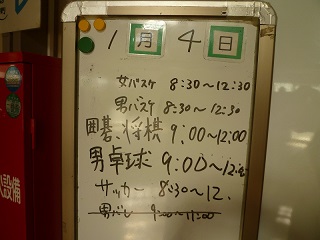 1月4日
女バスケ 8:30~12:30
男バスケ 8:30~12:30
囲碁、将棋 9:00~12:00
男卓球 9:00~12:00
サッカー 8:30~12.
男バレ 9:00~11:00
設備